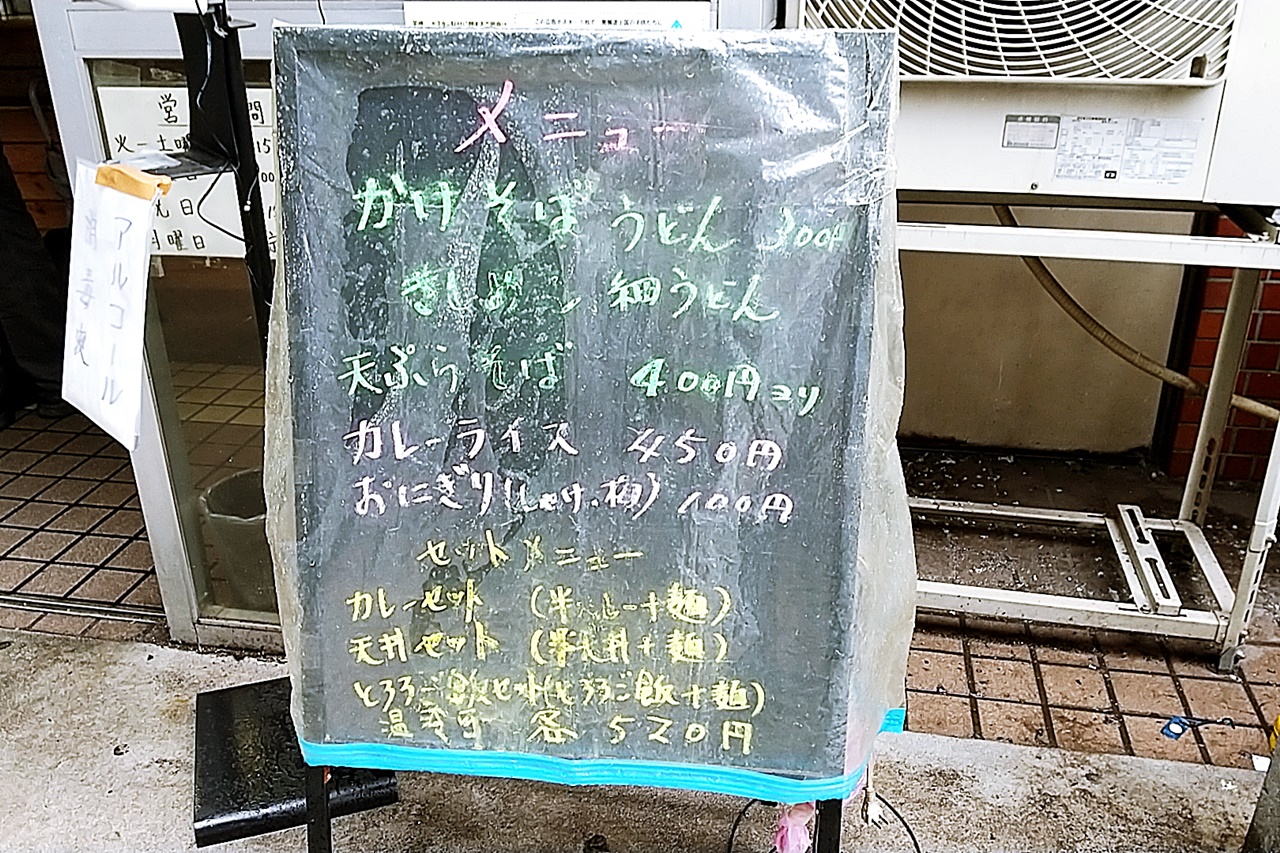 メニュー
かけそば うどん 300円
きしめん 細うどん
天ぷらそば 400円より
カレーライス 450円
おにぎり(しゃけ、梅) 100円
セットメニュー
カレーセット (半カレー+麺)
天丼セット (半天丼+麺)
とろろご飯セット(とろろご飯+麺)
温 各 520円
営 間
火-土曜 15
日
月曜日
アルコール
消毒液